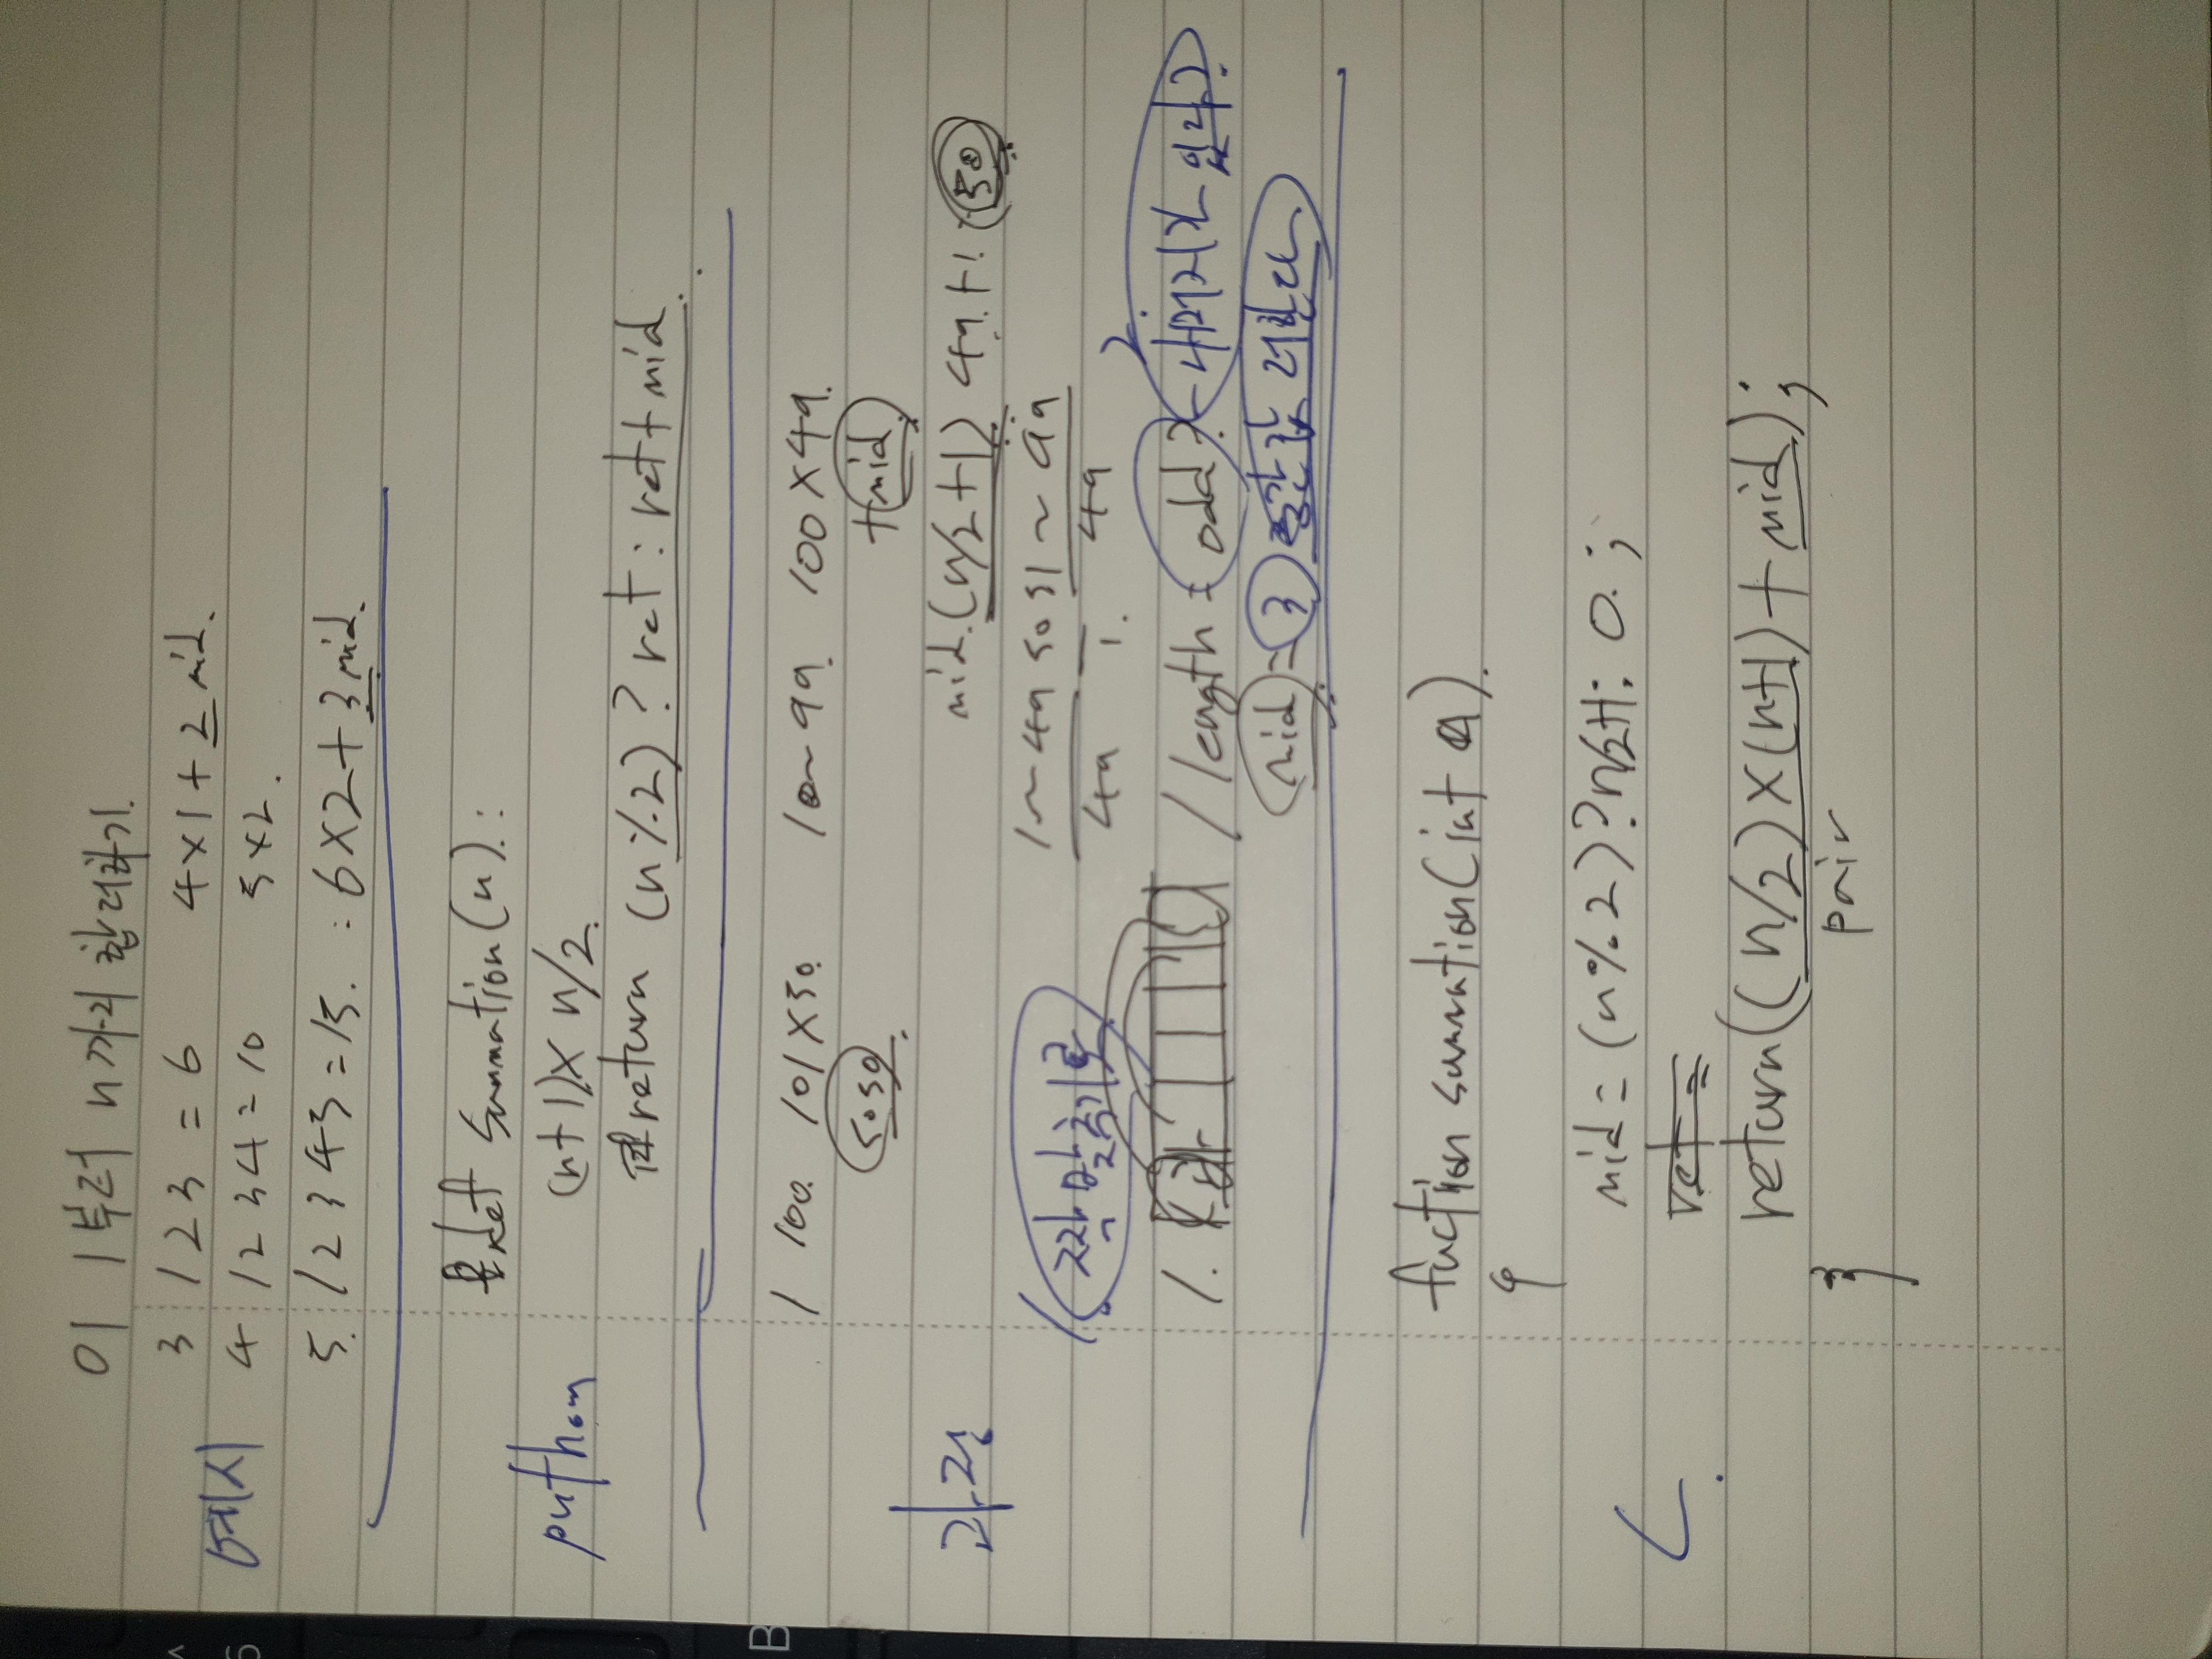 01 1부터 n까지 합 더하기.
3 1 2 3 = 6 4×1+2 mid.
예시
4 1 2 3 4 = 10 5×2.
5. 1 2 3 4 5 = 15. : 6×2+3 mid.
def summation(n):
(n+1)× n/2.
puthon
return (n%2) ? ret : ret+mid.
1 100. 101×50. 1~99. 100×49.
5050. +mid
과정
mid.(n/2+1) 49.+1. 50
1~49 50 51~99
49 1. 49
1. 짝맞추기로
2.
1. / length = odd? 나머지가 있나?
mid = 3 중간값 더한다
fuction summation(int n).
{
mid = (n%2)?n/2+1: 0.;
C.
ret =
return((n/2)×(n+1)+mid);
pair
}